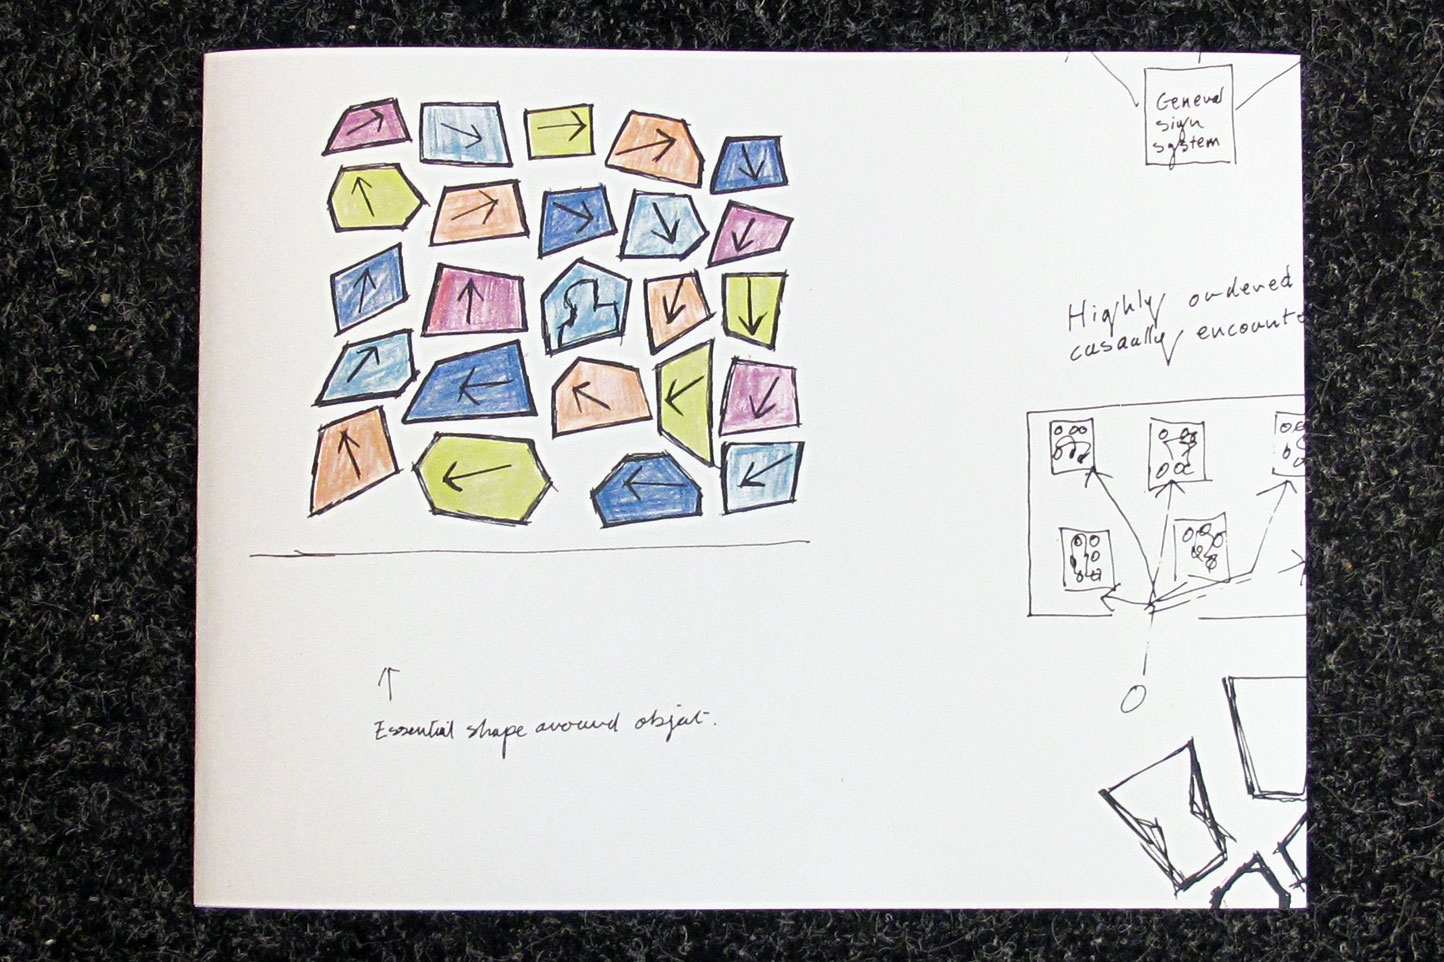 General
sign
system
Highly ordered
casually encounte
Essential shape around object.